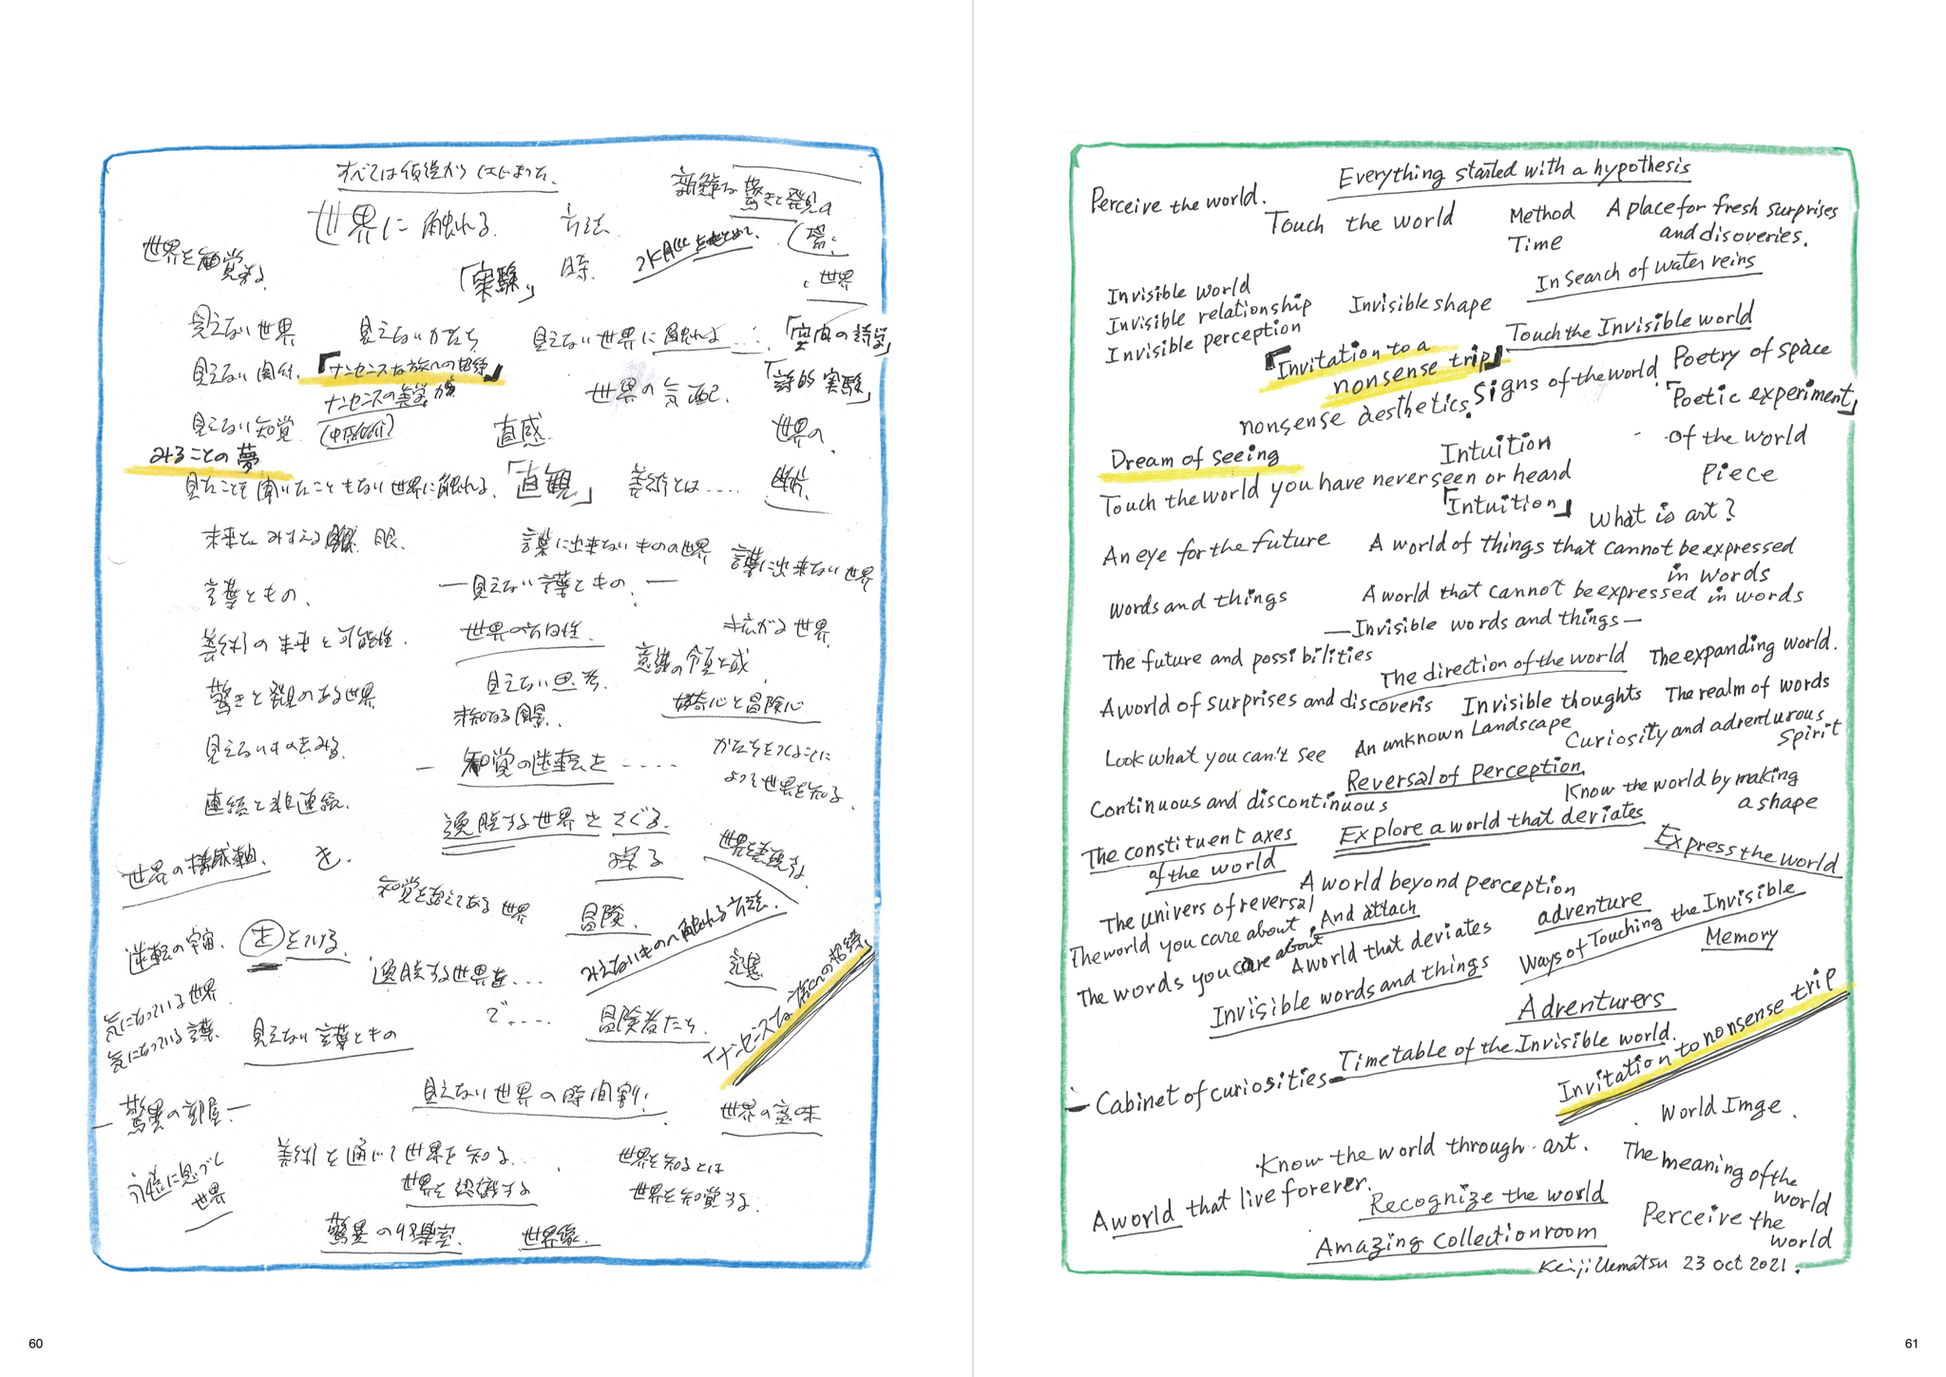 すべては仮説からはじまった。
世界に触れる 方法
新鮮な驚きと発見の
場。
世界を知覚する
「実験」
時
水脈を求めて
世界
見えない世界
見えないかたち
見えない世界に触れる
「空間の詩学」
見えない関係
『ナンセンスな旅への招待』
「詩的実験」
ナンセンスの美学
世界の気配
見えない知覚
直感
世界の
みることの夢
見たことも聞いたこともない世界に触れる
「直観」
美術とは....
断片
未来を
眼
言葉に出来ないものの世界
言葉に出来ない世界
言葉ともの
—見えない言葉ともの—
美術の未来と可能性
世界の方向性
広がる世界
見えない思考
驚きと発見のある世界
未知なる風景
好奇心と冒険心
見えないものをみる
— 知覚の逆転を ....
かたちをつくることに
よって世界を知る
連続と非連続
逸脱する世界をさぐる
世界の構成軸 を
探る
世界を表現する
知覚を超えてある世界
冒険
みえないものへ触れる方法
逆転の宇宙
逸脱する世界を...
記憶
気になっている世界
気になっている言葉
見えない言葉ともの
で....
冒険者たち
ナンセンスな旅への招待
見えない世界の時間割
—驚異の部屋—
世界の意味
美術を通じて世界を知る
世界を知るとは
世界を知覚する
世界を認識する
永遠に息づく
世界
驚異の収集室
世界像
60
Everything started with a hypothesis
Perceive the world.
Touch the world
Method
Time
A place for fresh surprises
and disoveries.
In search of water veins
Invisible world
Invisible relationship
Invisible shape
Invisible perception
Touch the Invisible world
『Invitation to a
nonsense trip』
Poetry of space
Signs of the world
「Poetic experiment」
nonsense aesthetics.
Dream of seeing
Intuition
- of the world
Piece
Touch the world you have never seen or heard
「Intuition」
What is art?
An eye for the future
A world of things that cannot be expressed
in words
words and things
A world that cannot be expressed in words
—Invisible words and things—
The future and possibilities
The direction of the world
The expanding world.
A world of surprises and discoveris
Invisible thoughts
The realm of words
Look what you can't see
An unknown Landscape
Curiosity and adventurous
spirit
Reversal of perception
Continuous and discontinuous
Know the world by making
a shape
The constituent axes
of the world
Explore a world that deviates
Express the world
A world beyond perception
The univers of reversal
And attach
adventure
The world you care about
The words you care about
A world that deviates
Ways of Touching the Invisible
Memory
Invisible words and things
Adventurers
Timetable of the Invisible world.
Invitation to nonsense trip
– Cabinet of curiosities–
World Imge.
Know the world through art.
The meaning of the
world
A world that live forever.
Recognize the world
Perceive the
world
Amazing Collection room
Keiji Uematsu 23 oct 2021.
61